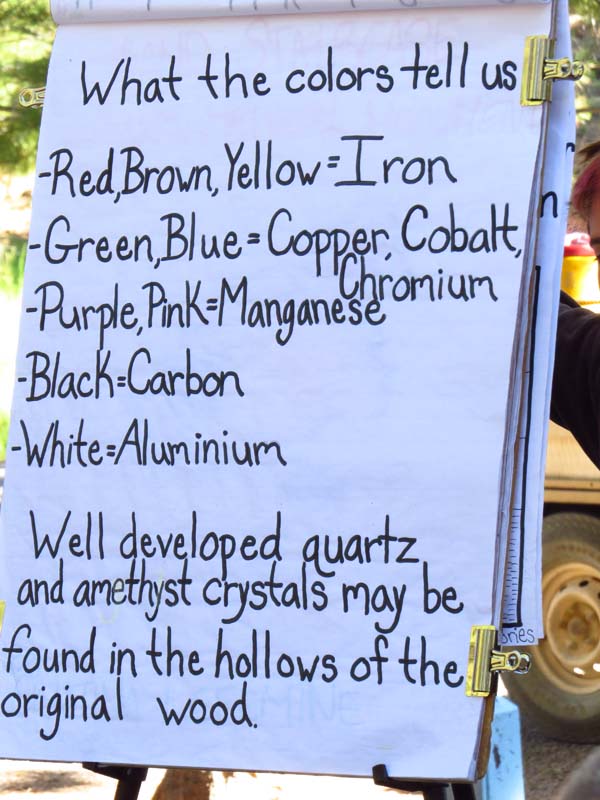 What the colors tell us
-Red,Brown,Yellow=Iron
-Green,Blue=Copper, Cobalt,
Chromium
-Purple,Pink=Manganese
-Black=Carbon
-White=Aluminium
Well developed quartz
and amethyst crystals may be
found in the hollows of the
original wood.